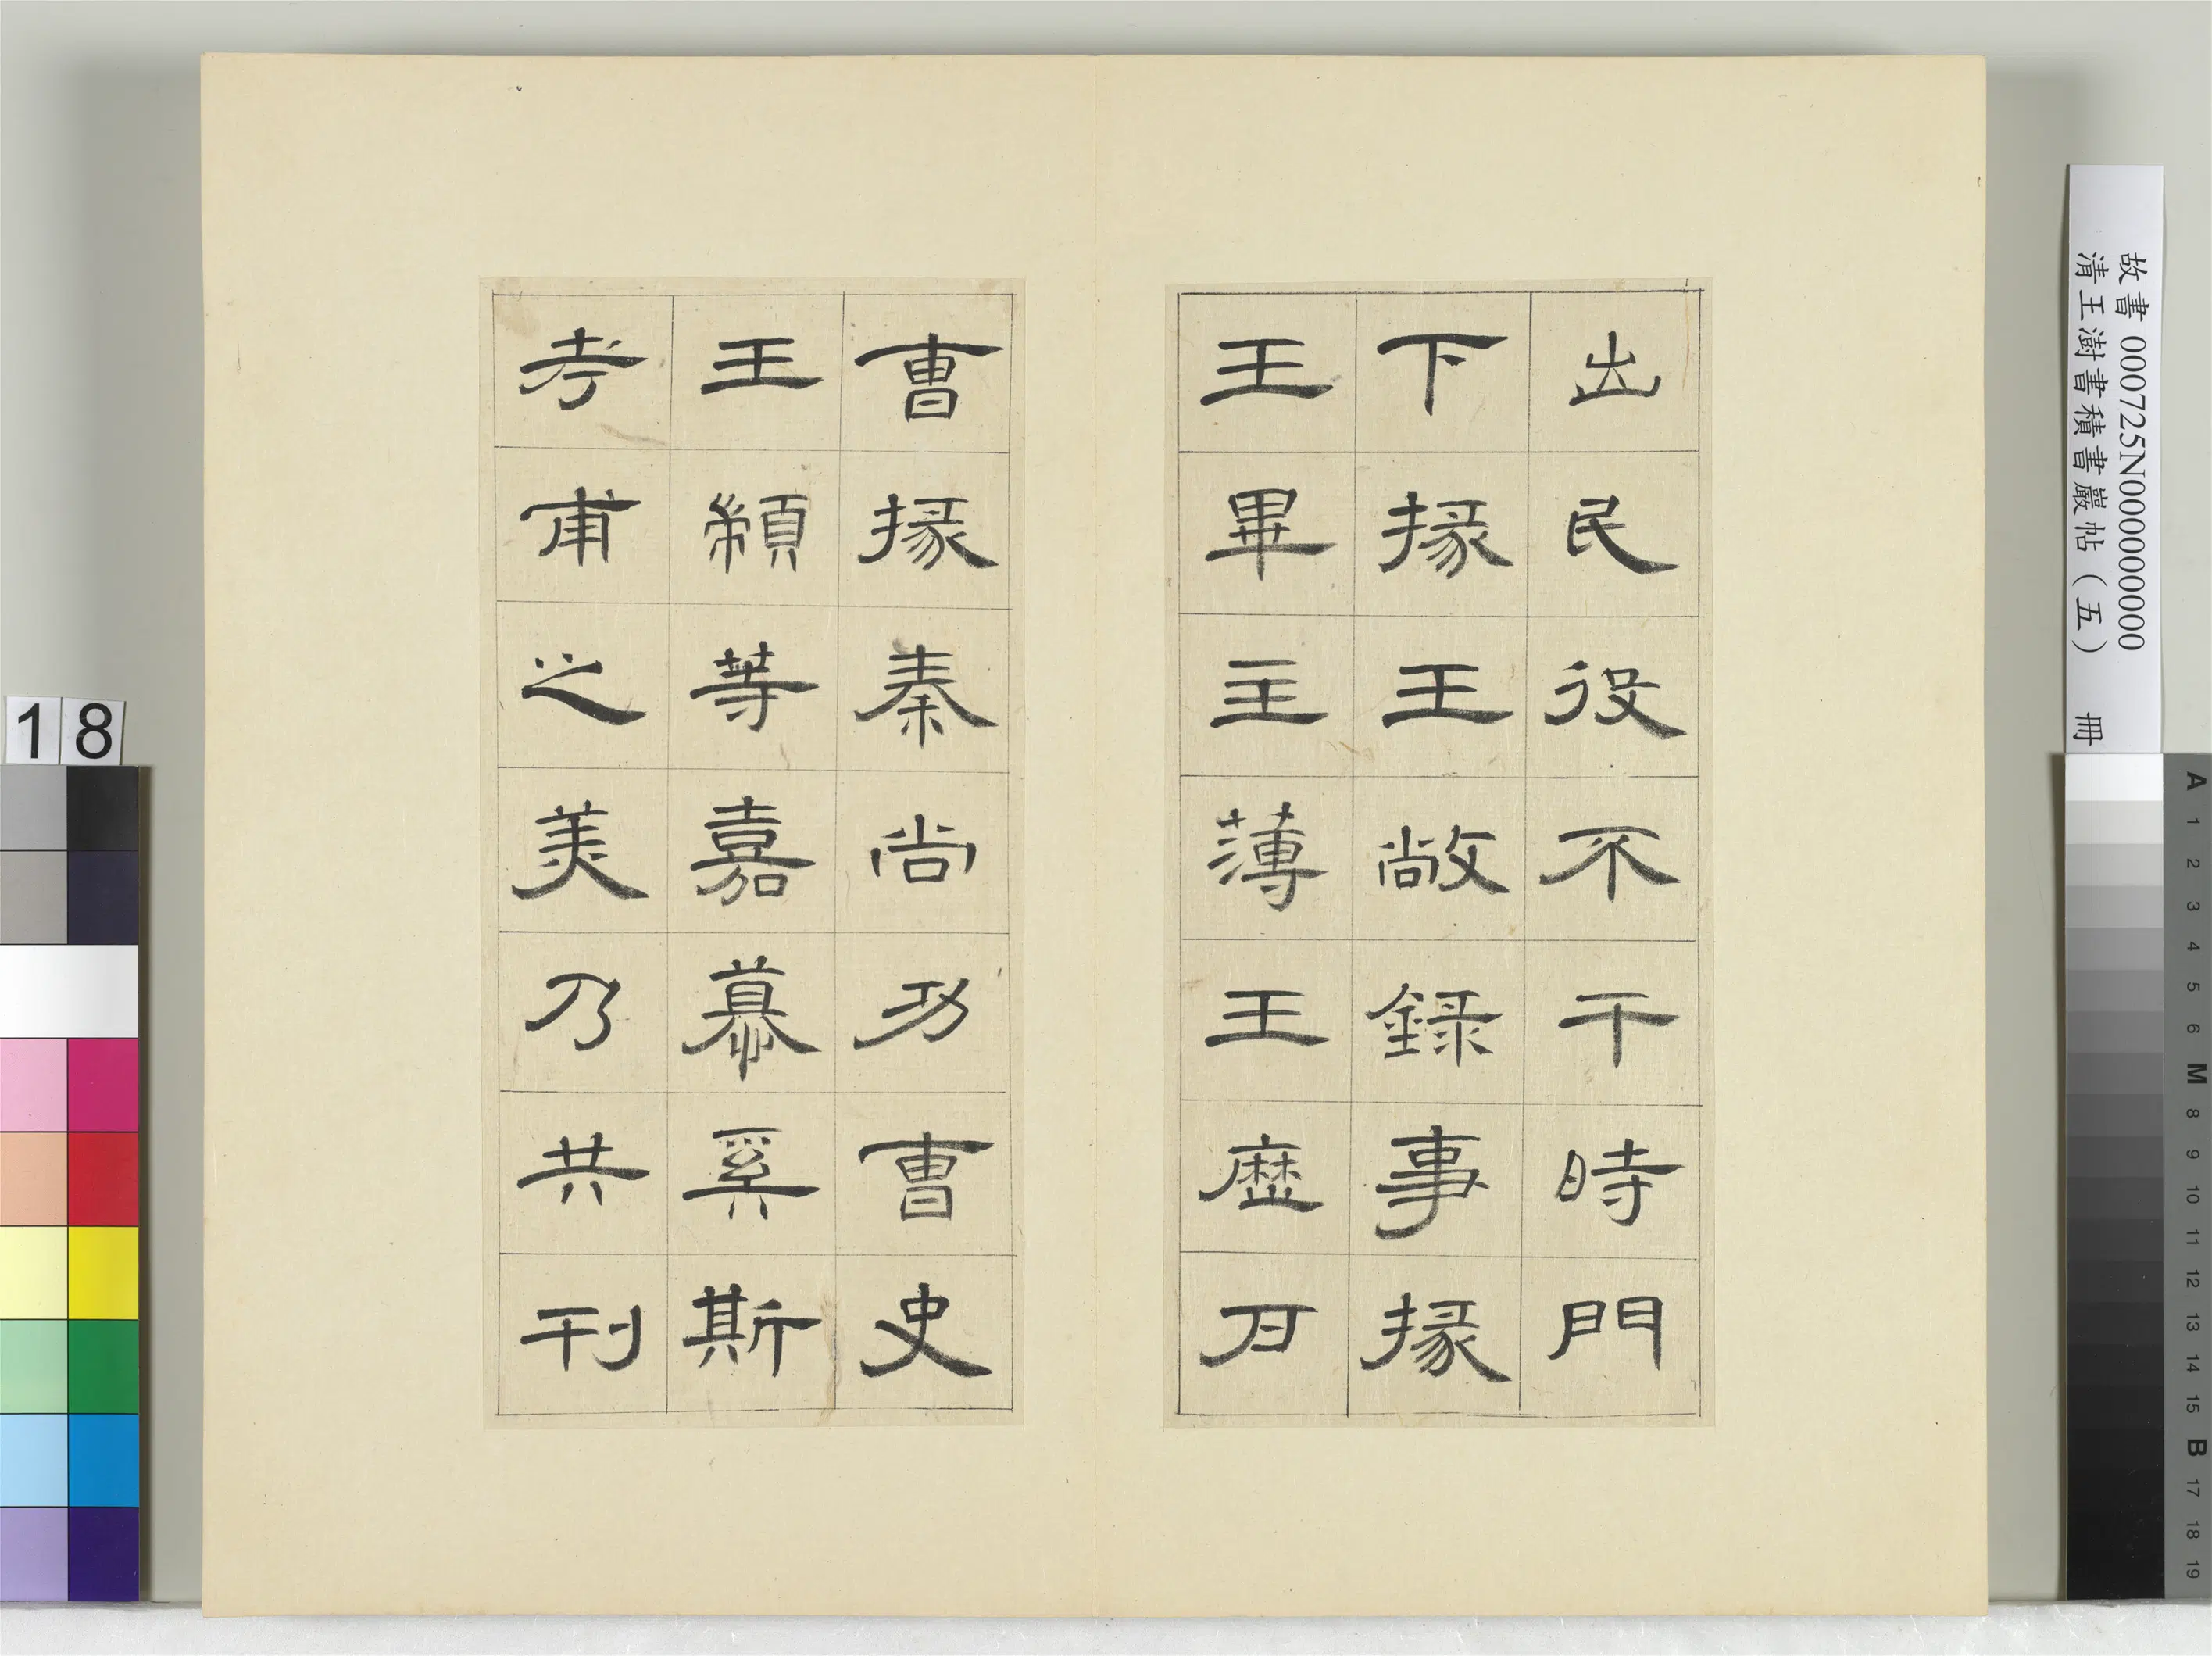 出民役不干時門
下掾王敞錄事掾
王畢主薄王歷戶
曹掾秦尚功曹史
王顓等嘉慕奚斯
考甫之美乃共刊
故書000725N000000000
清王澍書積書巖帖(五) 冊
18
A 1 2 3 4 5 6 M 8 9 10 11 12 13 14 15 B 17 18 19